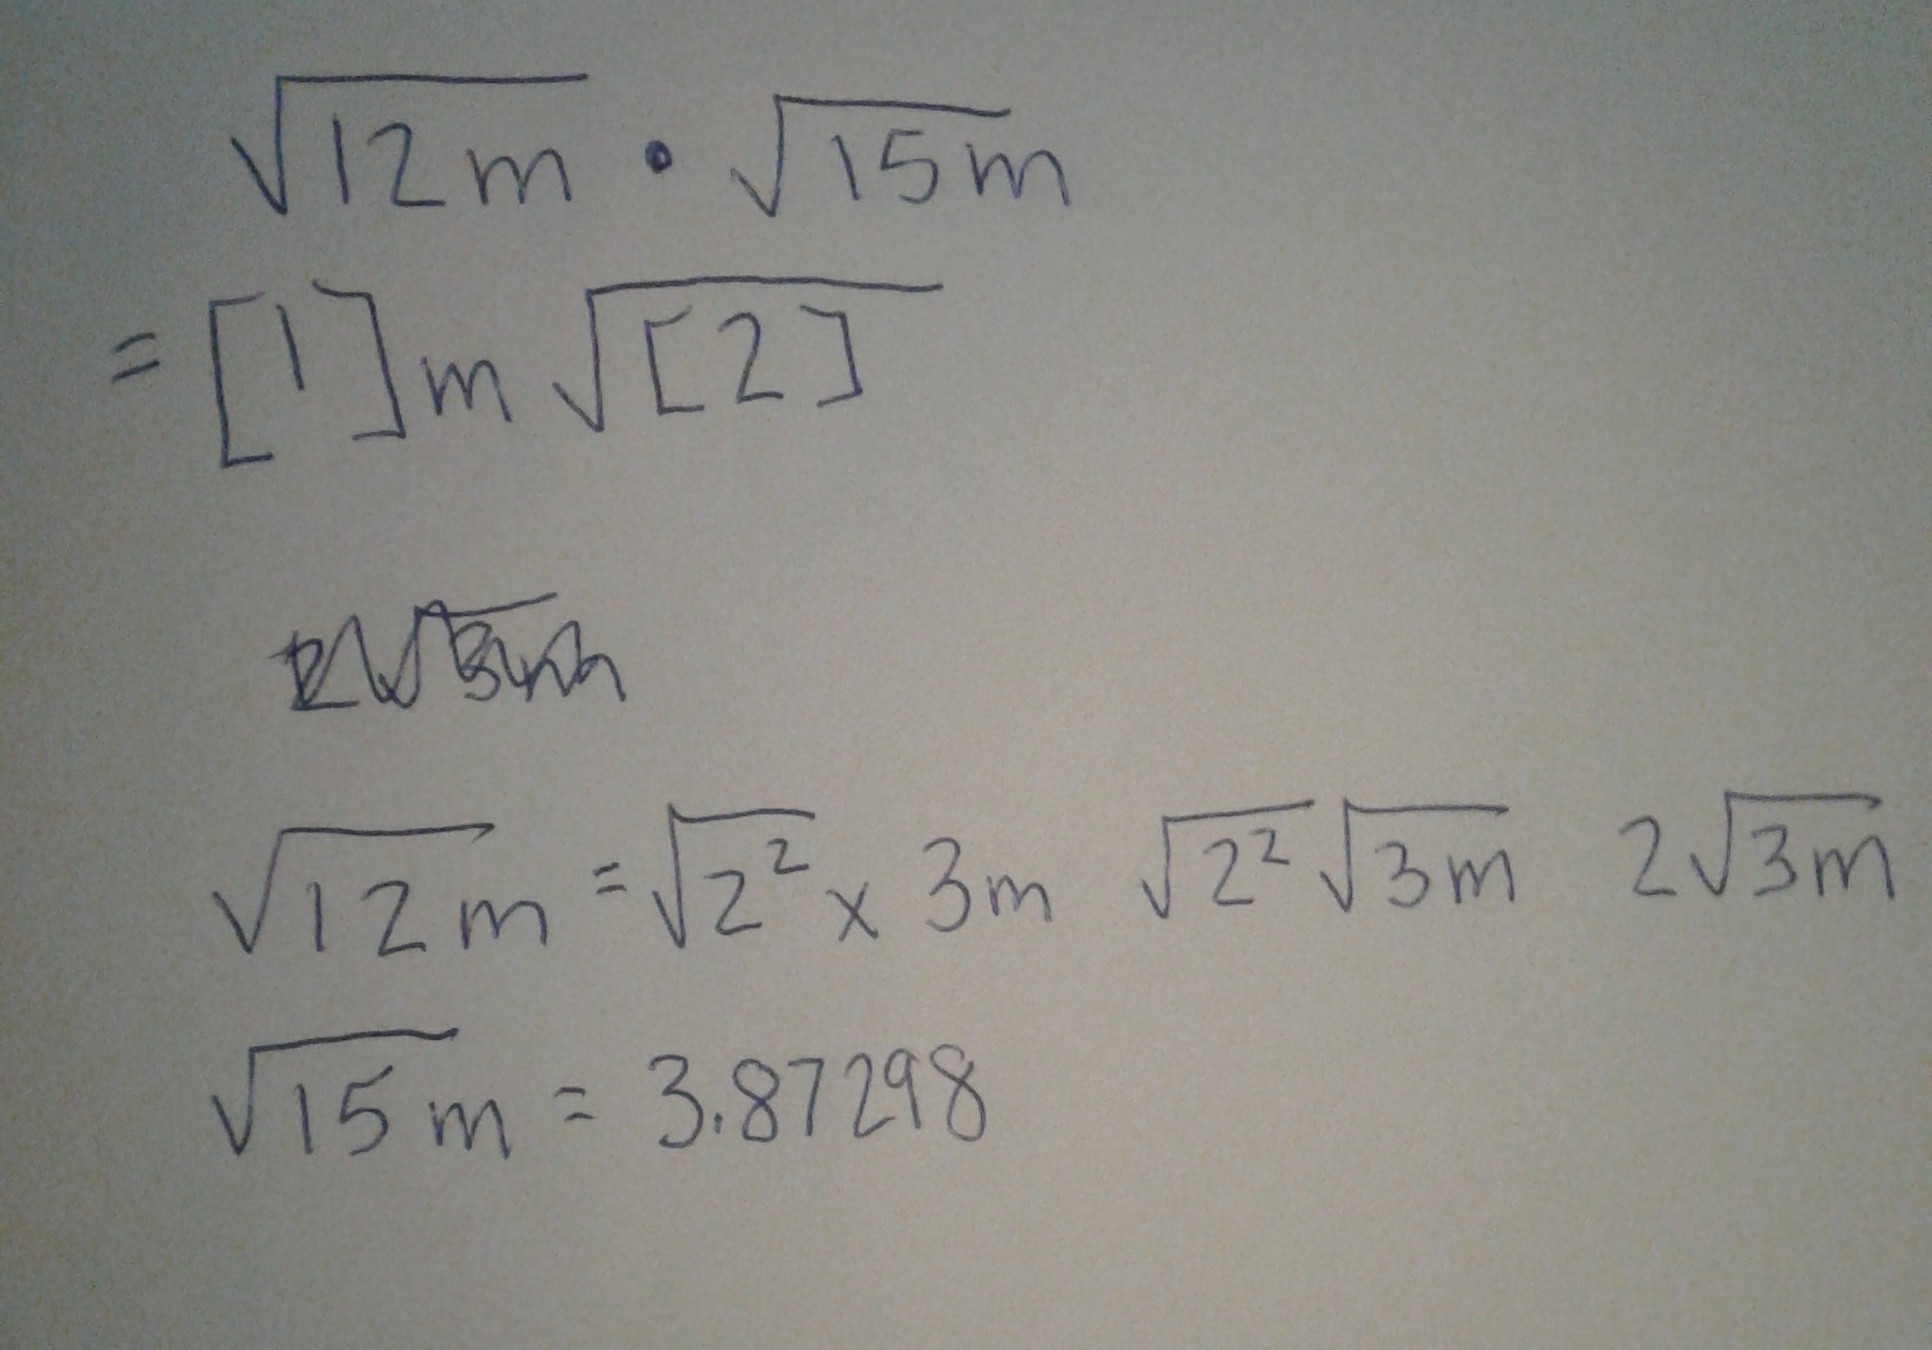 √12m • √15m
= [1]m √[2]
√12m = √2² x 3m √2² √3m 2√3m
√15m = 3.87298